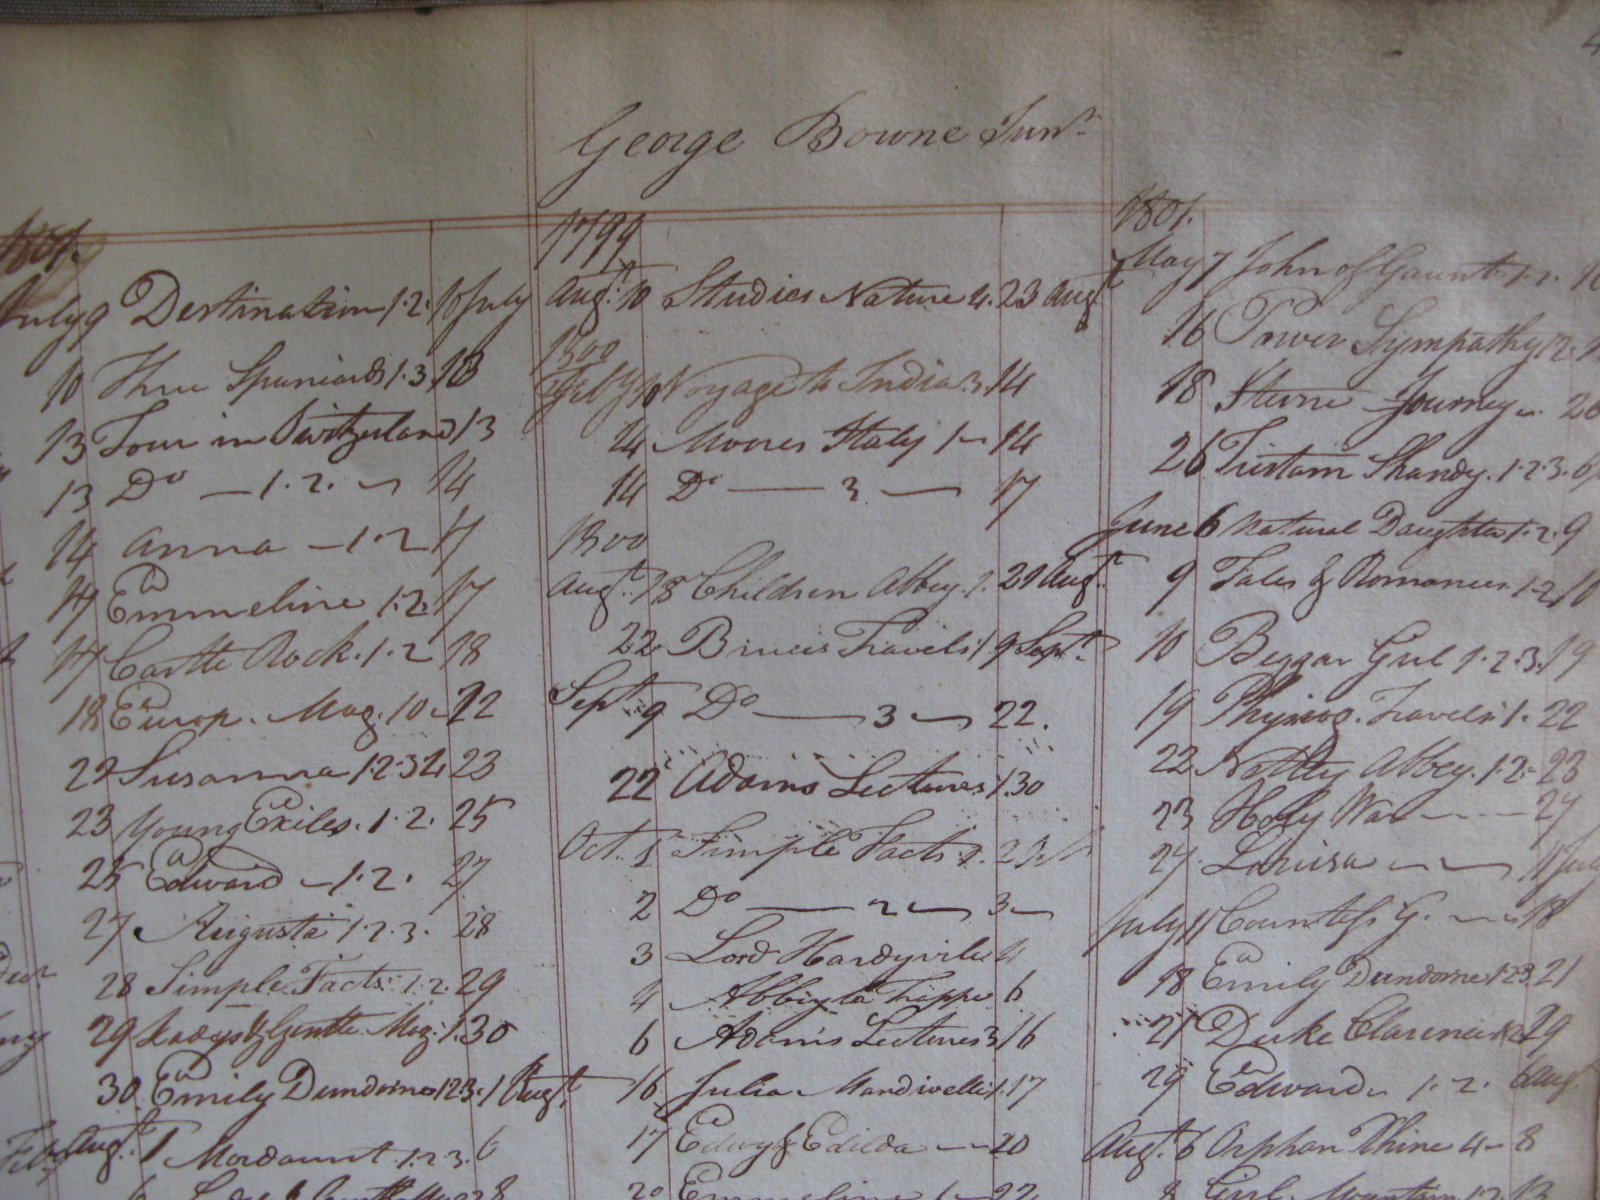 George Bowne Junr
1801.
July 9 Destination 1.2. 10 July
10 Three Spaniards 1.3. 13
13 Tour in Switzerland 13
13 Do — 1.2. — 14
14 Anna — 1.2 17
17 Emmeline 1.2. 17
17 Castle Rock. 1.2 18
18 Europ. Mag. 10 - 22
22 Susanna 1.2.3.4. 23
23 Young Exiles. 1.2. 25
25 Edward — 1.2. 27
27 Augusta 1.2.3. 28
28 Simple Facts. 1.2. 29
29 Ladys & Gentle. Mag. 1. 30
30 Emily Dundorne 1.2.3. 1 Augt
Augt. 1 Mordaunt 1.2.3. 6
6
1799
Augt. 10 Studies Nature 4. 23 Augt
1800
Feby 10 Voyage to India 3. 14
Moores Italy 1 — 14
14 Do — 2 — 17
1800
Augt. 18 Children Abbey 1. 21 Augt.
22 Bruces Travels 1. 9 Sept.
Sept. 9 Do — 3 — 22.
22 Adams Lectures 1. 30
Oct. 1 Simple Facts 2.
2 Do — 2 — 3 —
3 Lord Hardyville 4
4 Abbey la Trappe 6
6 Adams Lectures 3 16
16 Julia Mandivelle 1. 17
17 Edwy & Edilda — 20
20 Emmeline 1 — 22
1801.
May 7 John of Gaunt. 1.2. 16
16 Power Sympathy 1.2.
18 Sterne Journey — 26
26 Tristam Shandy. 1.2.3. 6
June 6 Natural Daughter 1.2. 9
9 Tales & Romances. 1.2. 10
10 Beggar Girl 1.2.3. 19
19 Physiog. Travels. 1. 22
22 Nettley Abbey. 1.2. 23
23 Holy War — 24
24 Louisa — 11 July
July 11 Countess G. — 18
18 Emily Dundorne 1.2.3. 21
21 Duke Clarence 1.2. 29
29 Edward — 1.2. 6 Aug
Augt. 6 Orphan Rhine 4 — 8
8 Mountain 1.2